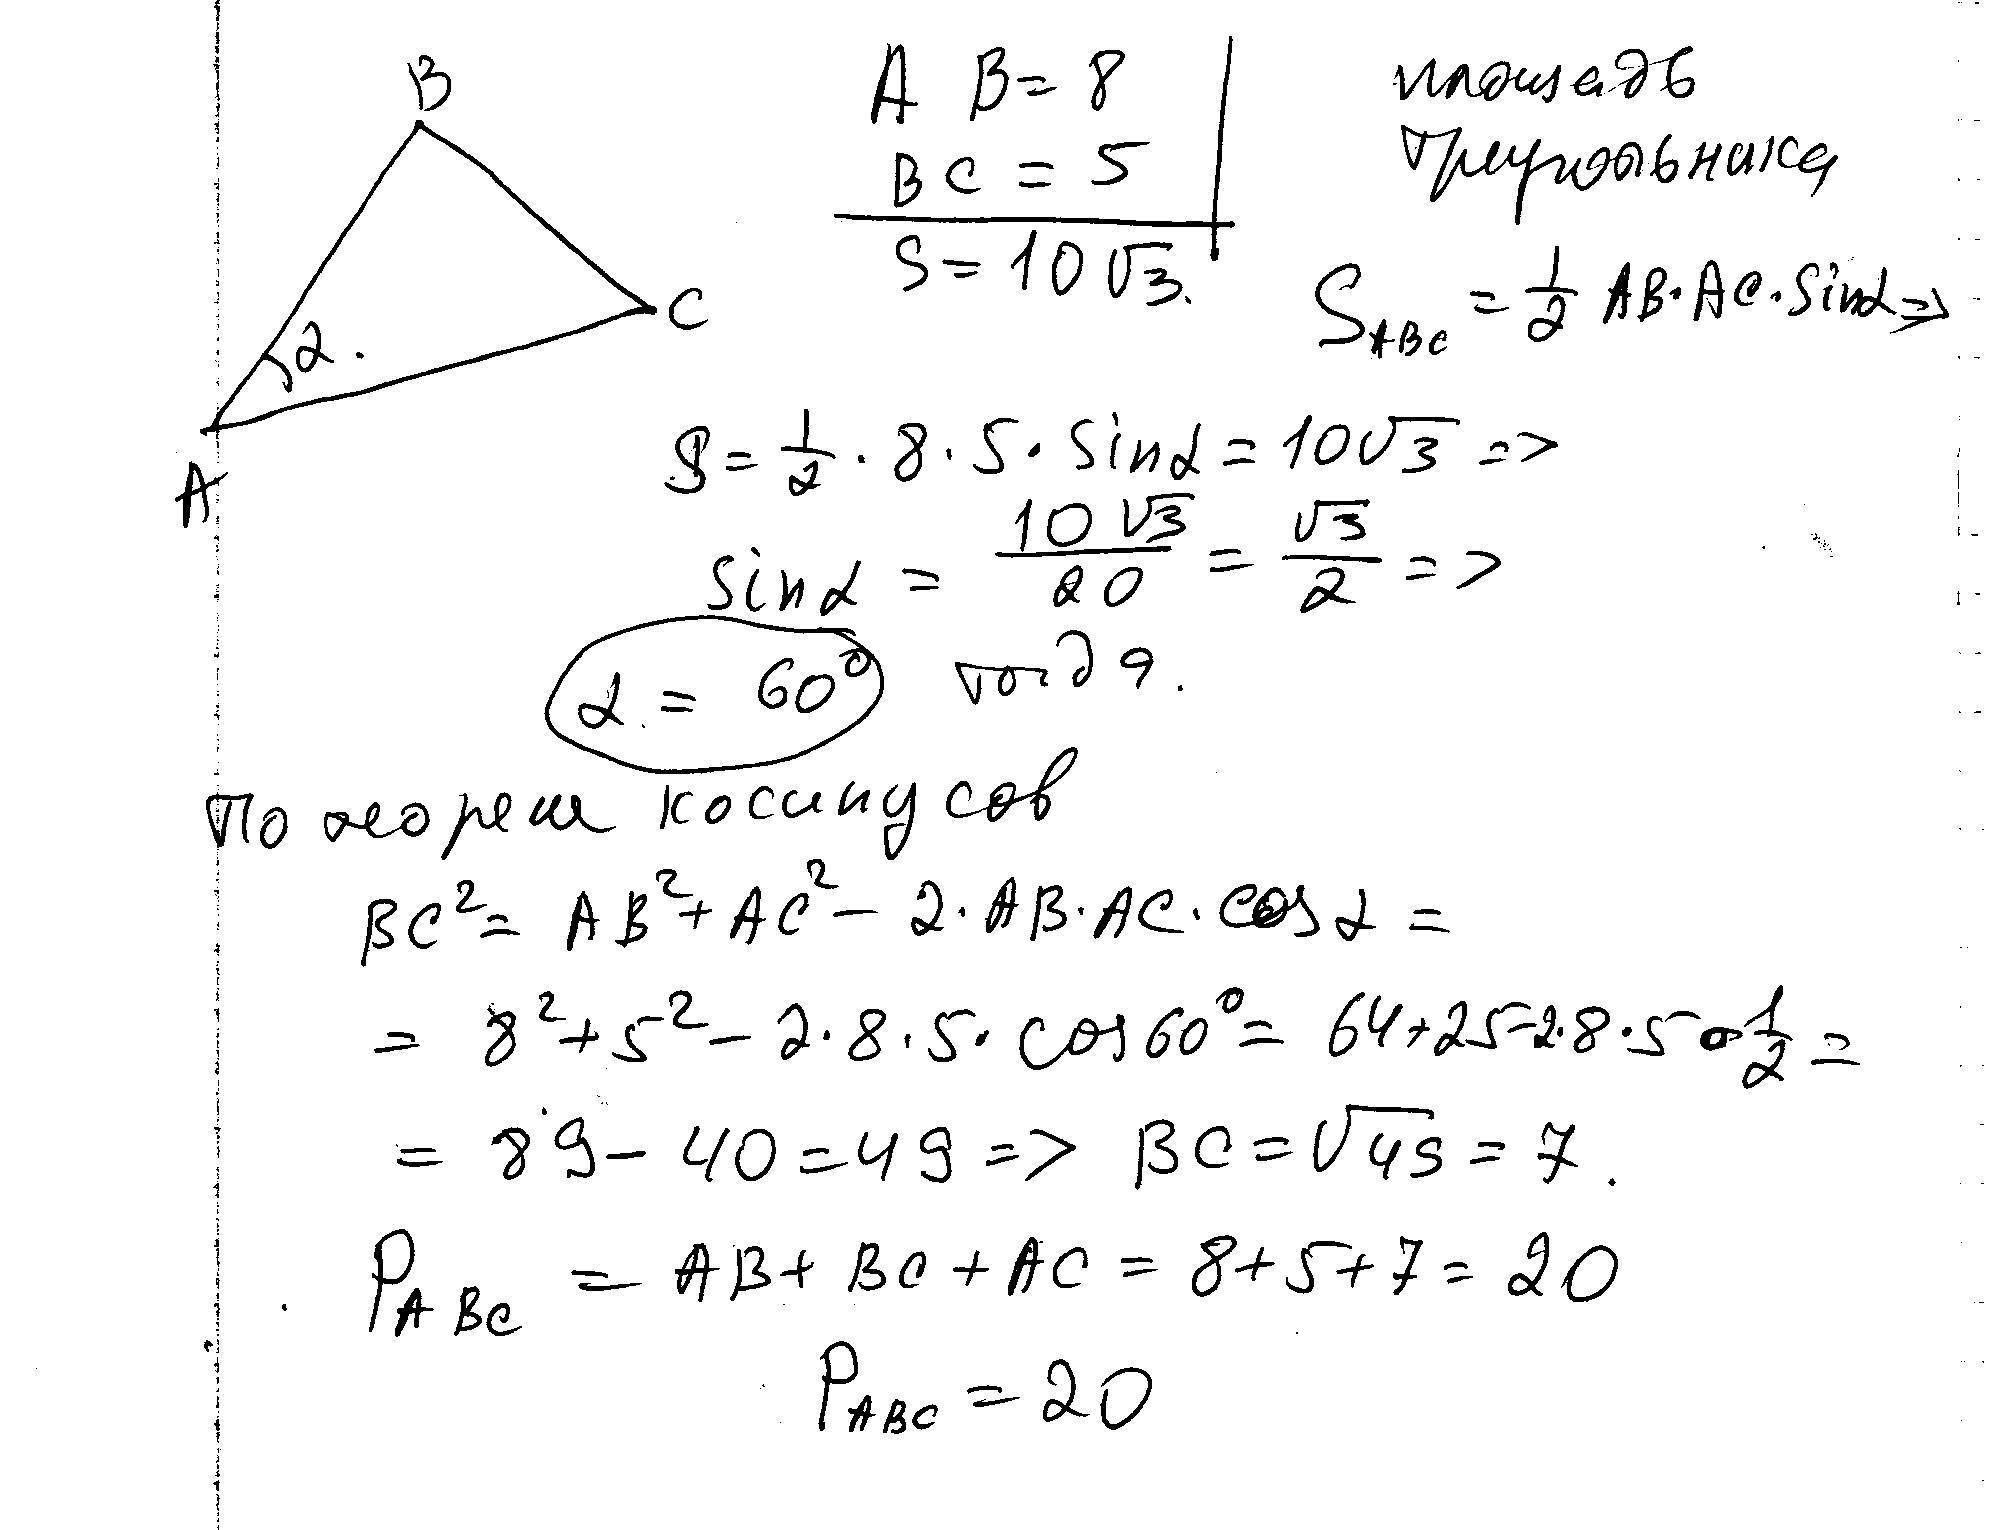 B
C
2.
A
AB=8
BC=5
S=10√3.
площадь
треугольника
S_ABC = 1/2 AB·AC·Sinα=>
S=1/2·8·5·Sinα=10√3 =>
Sinα = 10√3/20 = √3/2 =>
α = 60° тогда.
По теореме косинусов
BC²= AB²+AC²-2·AB·AC·cosα=
= 8²+5²-2·8·5·cos60°=64+25-2·8·5·1/2=
= 89-40=49=> BC=√49=7.
P_ABC = AB+BC+AC=8+5+7=20
P_ABC=20